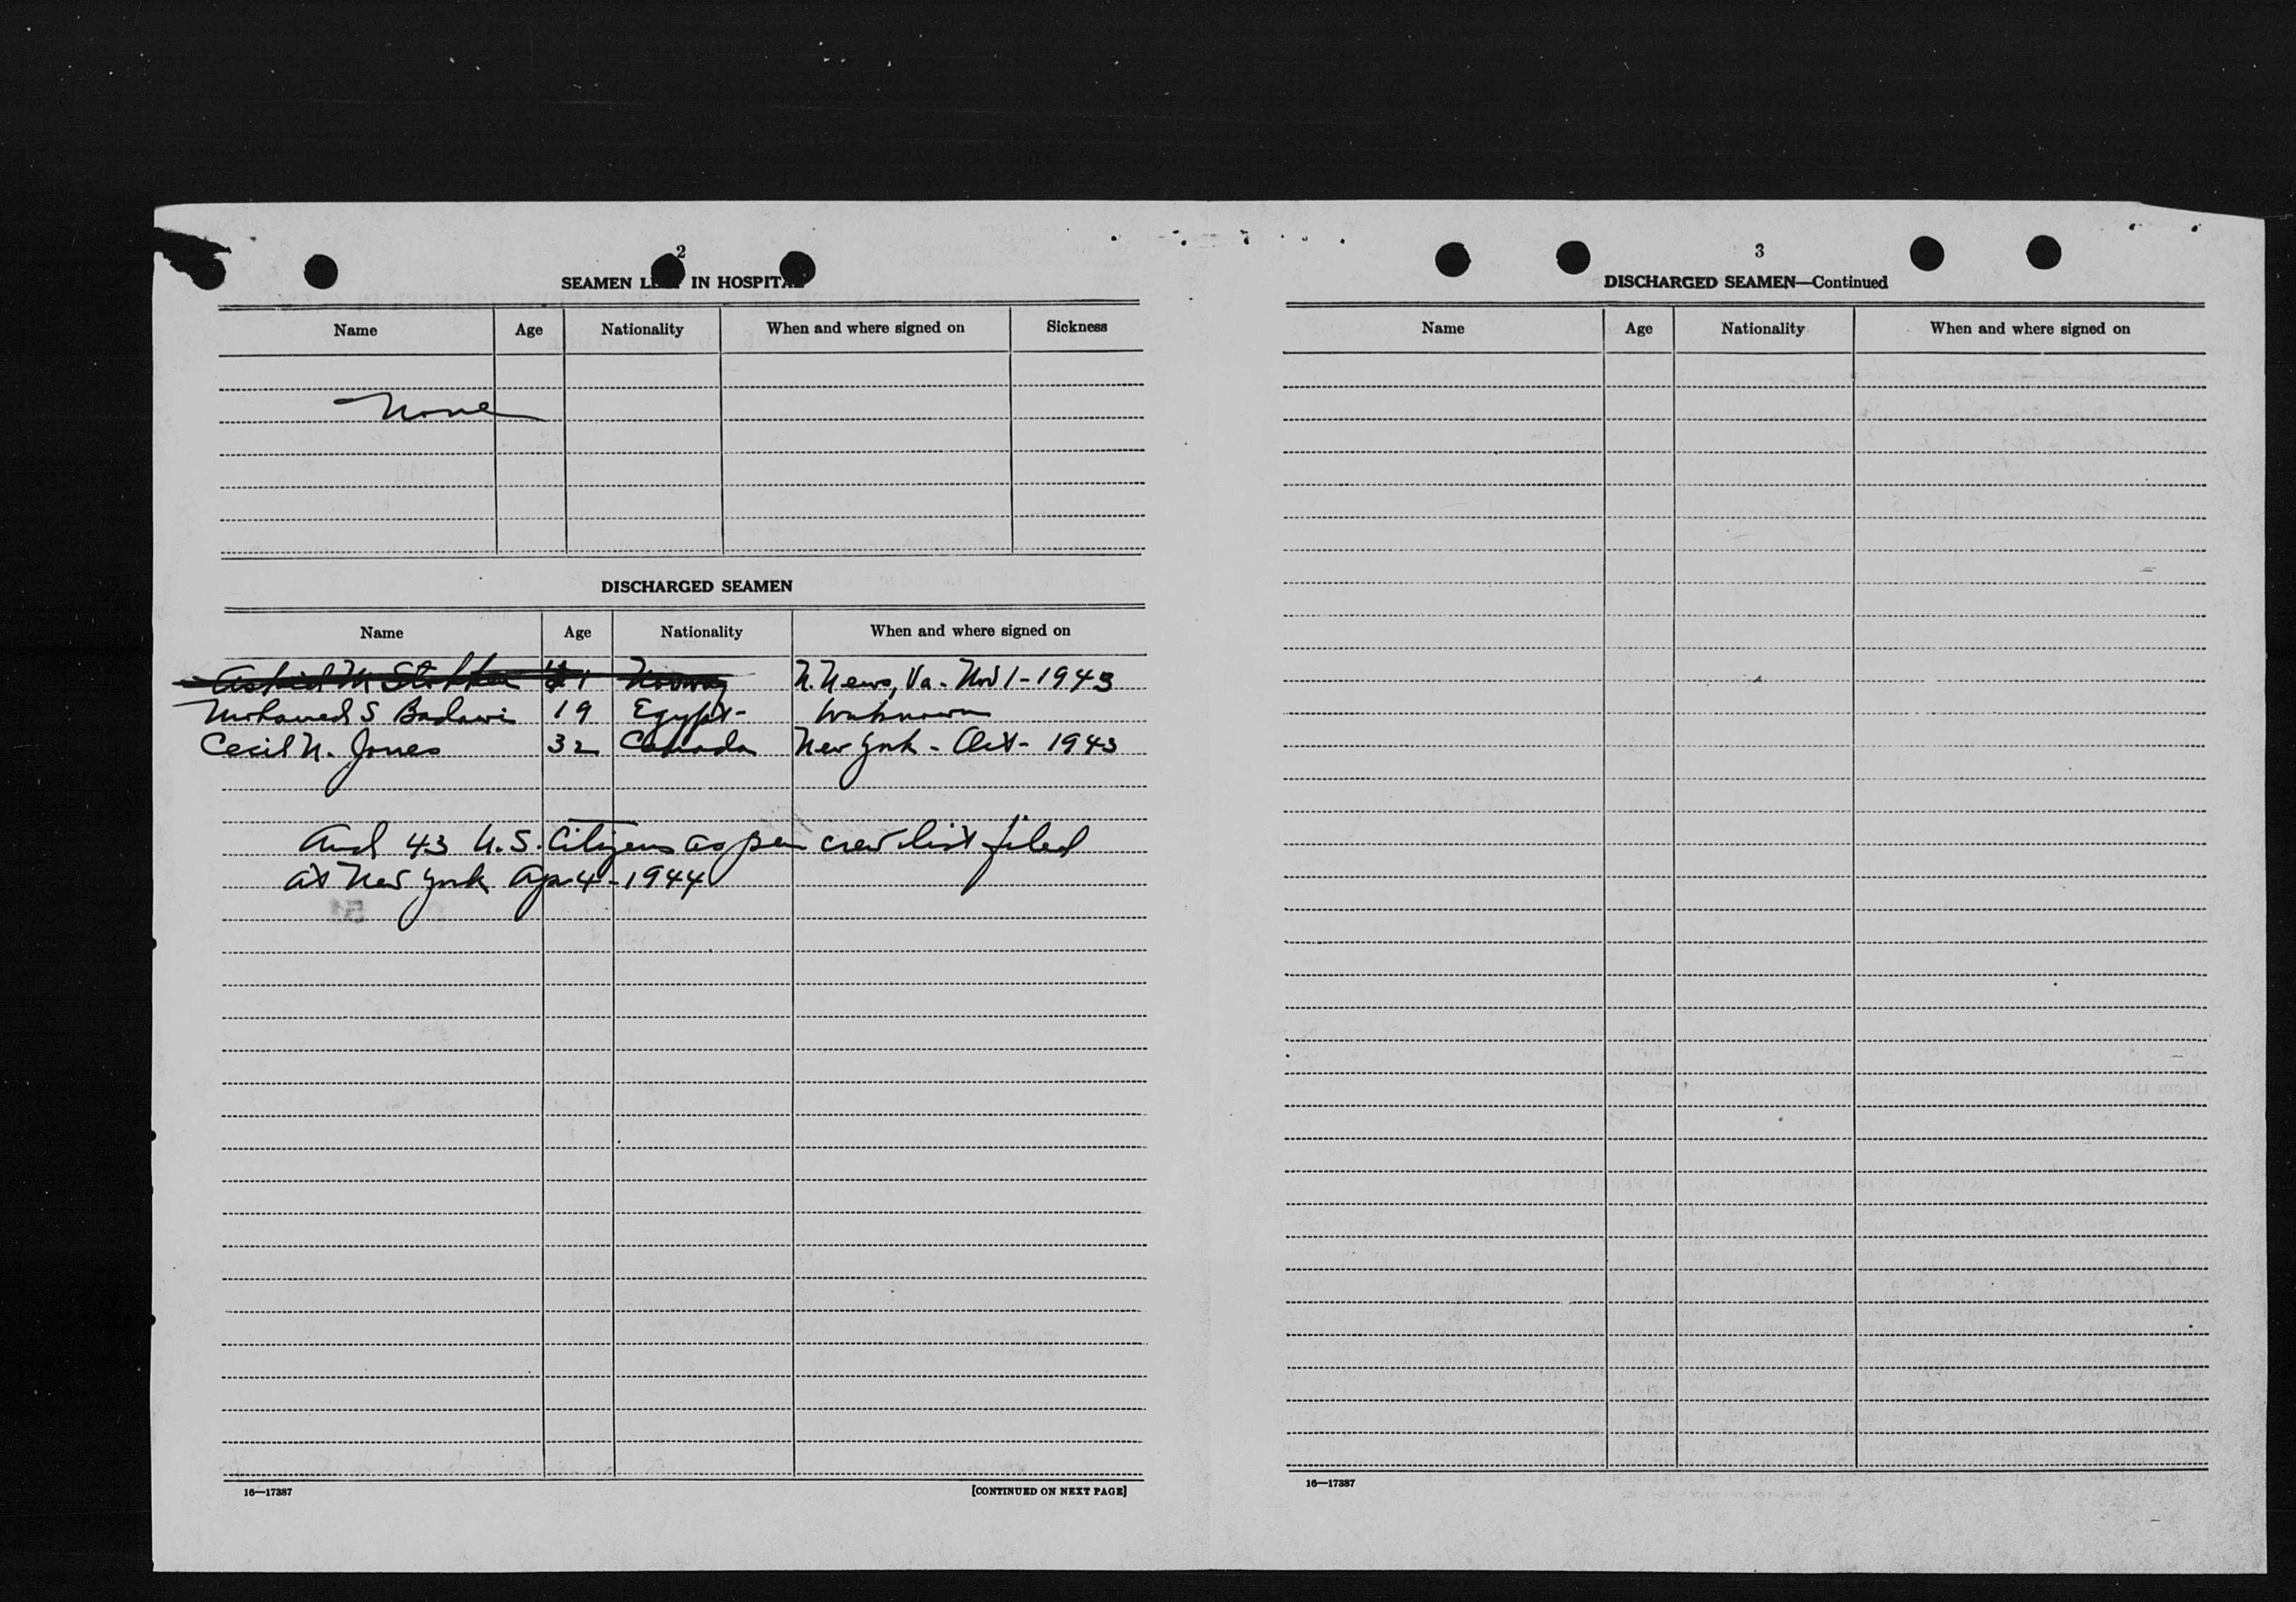 2
SEAMEN IN HOSPITAL
Name Age Nationality When and where signed on Sickness
None
DISCHARGED SEAMEN
Name Age Nationality When and where signed on
Norway N. News, Va. - Nov 1 - 1943
Mohamed S Badawi 19 Egypt - Unknown
Cecil N. Jones 32 Canada New York - Oct - 1943
And 43 U.S. Citizens as per crew list filed
at New York Apr 4 - 1944
16—17387 [CONTINUED ON NEXT PAGE]
3
DISCHARGED SEAMEN—Continued
Name Age Nationality When and where signed on
16—17387